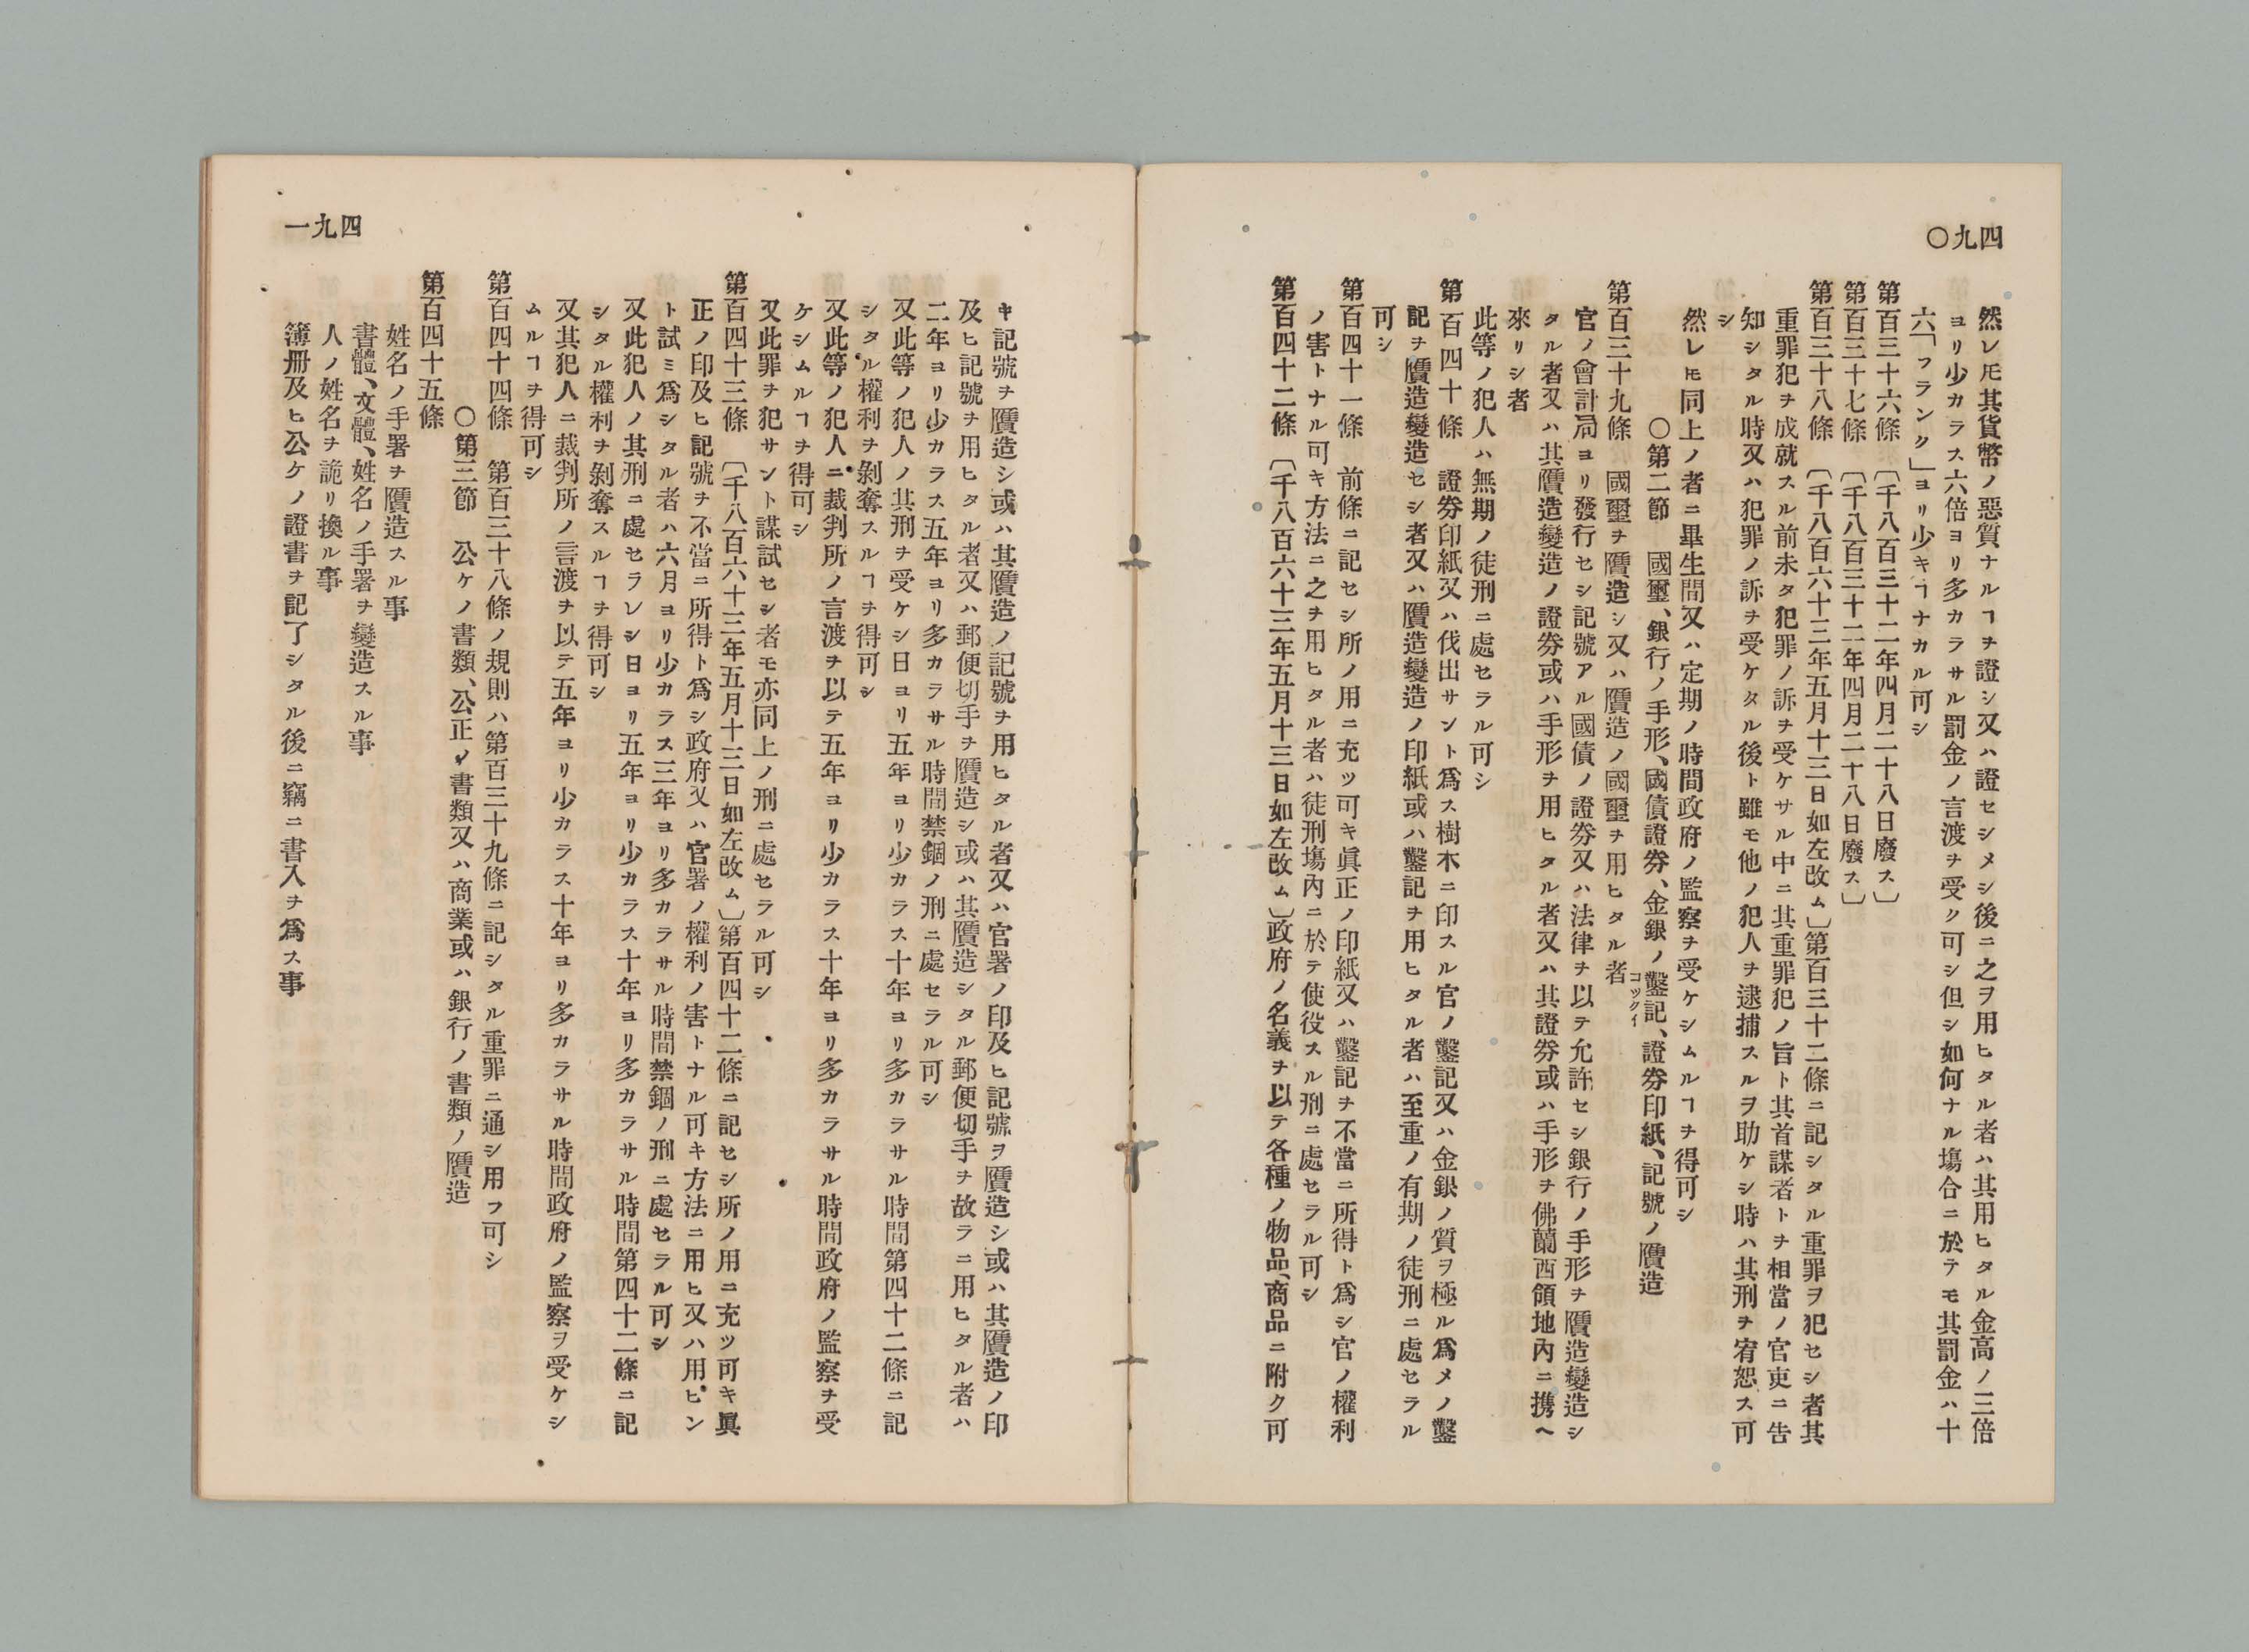 四九〇
然レ𪜈其貨幣ノ惡質ナルヿヲ證シ又ハ證セシメシ後ニ之ヲ用ヒタル者ハ其用ヒタル金高ノ三倍
ヨリ少カラス六倍ヨリ多カラサル罰金ノ言渡ヲ受ク可シ但シ如何ナル塲合ニ於テモ其罰金ハ十
六「フランク」ヨリ少キヿナカル可シ
第百三十六條 〔千八百三十二年四月二十八日廢ス〕
第百三十七條 〔千八百三十二年四月二十八日廢ス〕
第百三十八條 〔千八百六十三年五月十三日如左改ム〕第百三十二條ニ記シタル重罪ヲ犯セシ者其
重罪犯ヲ成就スル前未タ犯罪ノ訴ヲ受ケサル中ニ其重罪犯ノ旨ト其首謀者トヲ相當ノ官吏ニ告
知シタル時又ハ犯罪ノ訴ヲ受ケタル後ト雖モ他ノ犯人ヲ逮捕スルヲ助ケシ時ハ其刑ヲ宥恕ス可
シ
然レ𪜈同上ノ者ニ畢生間又ハ定期ノ時間政府ノ監察ヲ受ケシムルヿヲ得可シ
〇第二節 國璽、銀行ノ手形、國債證券、金銀ノ鑿記、證券印紙、記號ノ贋造
コックイ
第百三十九條 國璽ヲ贋造シ又ハ贋造ノ國璽ヲ用ヒタル者
官ノ會計局ヨリ發行セシ記號アル國債ノ證券又ハ法律ヲ以テ允許セシ銀行ノ手形ヲ贋造變造シ
タル者又ハ其贋造變造ノ證券或ハ手形ヲ用ヒタル者又ハ其證券或ハ手形ヲ佛蘭西領地內ニ携ヘ
來リシ者
此等ノ犯人ハ無期ノ徒刑ニ處セラル可シ
第百四十條 證券印紙又ハ伐出サント爲ス樹木ニ印スル官ノ鑿記又ハ金銀ノ質ヲ極ル爲メノ鑿
記ヲ贋造變造セシ者又ハ贋造變造ノ印紙或ハ鑿記ヲ用ヒタル者ハ至重ノ有期ノ徒刑ニ處セラル
可シ
第百四十一條 前條ニ記セシ所ノ用ニ充ツ可キ眞正ノ印紙又ハ鑿記ヲ不當ニ所得ト爲シ官ノ權利
ノ害トナル可キ方法ニ之ヲ用ヒタル者ハ徒刑塲內ニ於テ使役スル刑ニ處セラル可シ
第百四十二條 〔千八百六十三年五月十三日如左改ム〕政府ノ名義ヲ以テ各種ノ物品、商品ニ附ク可
四九一
キ記號ヲ贋造シ或ハ其贋造ノ記號ヲ用ヒタル者又ハ官署ノ印及ヒ記號ヲ贋造シ或ハ其贋造ノ印
及ヒ記號ヲ用ヒタル者又ハ郵便切手ヲ贋造シ或ハ其贋造シタル郵便切手ヲ故ラニ用ヒタル者ハ
二年ヨリ少カラス五年ヨリ多カラサル時間禁錮ノ刑ニ處セラル可シ
又此等ノ犯人ノ其刑ヲ受ケシ日ヨリ五年ヨリ少カラス十年ヨリ多カラサル時間第四十二條ニ記
シタル權利ヲ剝奪スルヿヲ得可シ
又此等ノ犯人ニ裁判所ノ言渡ヲ以テ五年ヨリ少カラス十年ヨリ多カラサル時間政府ノ監察ヲ受
ケシムルヿヲ得可シ
又此罪ヲ犯サント謀試セシ者モ亦同上ノ刑ニ處セラル可シ
第百四十三條 〔千八百六十三年五月十三日如左改ム〕第百四十二條ニ記セシ所ノ用ニ充ツ可キ眞
正ノ印及ヒ記號ヲ不當ニ所得ト爲シ政府又ハ官署ノ權利ノ害トナル可キ方法ニ用ヒ又ハ用ヒン
ト試ミ爲シタル者ハ六月ヨリ少カラス三年ヨリ多カラサル時間禁錮ノ刑ニ處セラル可シ
又此犯人ノ其刑ニ處セラレシ日ヨリ五年ヨリ少カラス十年ヨリ多カラサル時間第四十二條ニ記
シタル權利ヲ剝奪スルヿヲ得可シ
又其犯人ニ裁判所ノ言渡ヲ以テ五年ヨリ少カラス十年ヨリ多カラサル時間政府ノ監察ヲ受ケシ
ムルヿヲ得可シ
第百四十四條 第百三十八條ノ規則ハ第百三十九條ニ記シタル重罪ニ通シ用フ可シ
〇第三節 公ケノ書類、公正ノ書類又ハ商業或ハ銀行ノ書類ノ贋造
第百四十五條
姓名ノ手署ヲ贋造スル事
書體、文體、姓名ノ手署ヲ變造スル事
人ノ姓名ヲ詭リ換ル事
簿册及ヒ公ケノ證書ヲ記了シタル後ニ竊ニ書入ヲ爲ス事